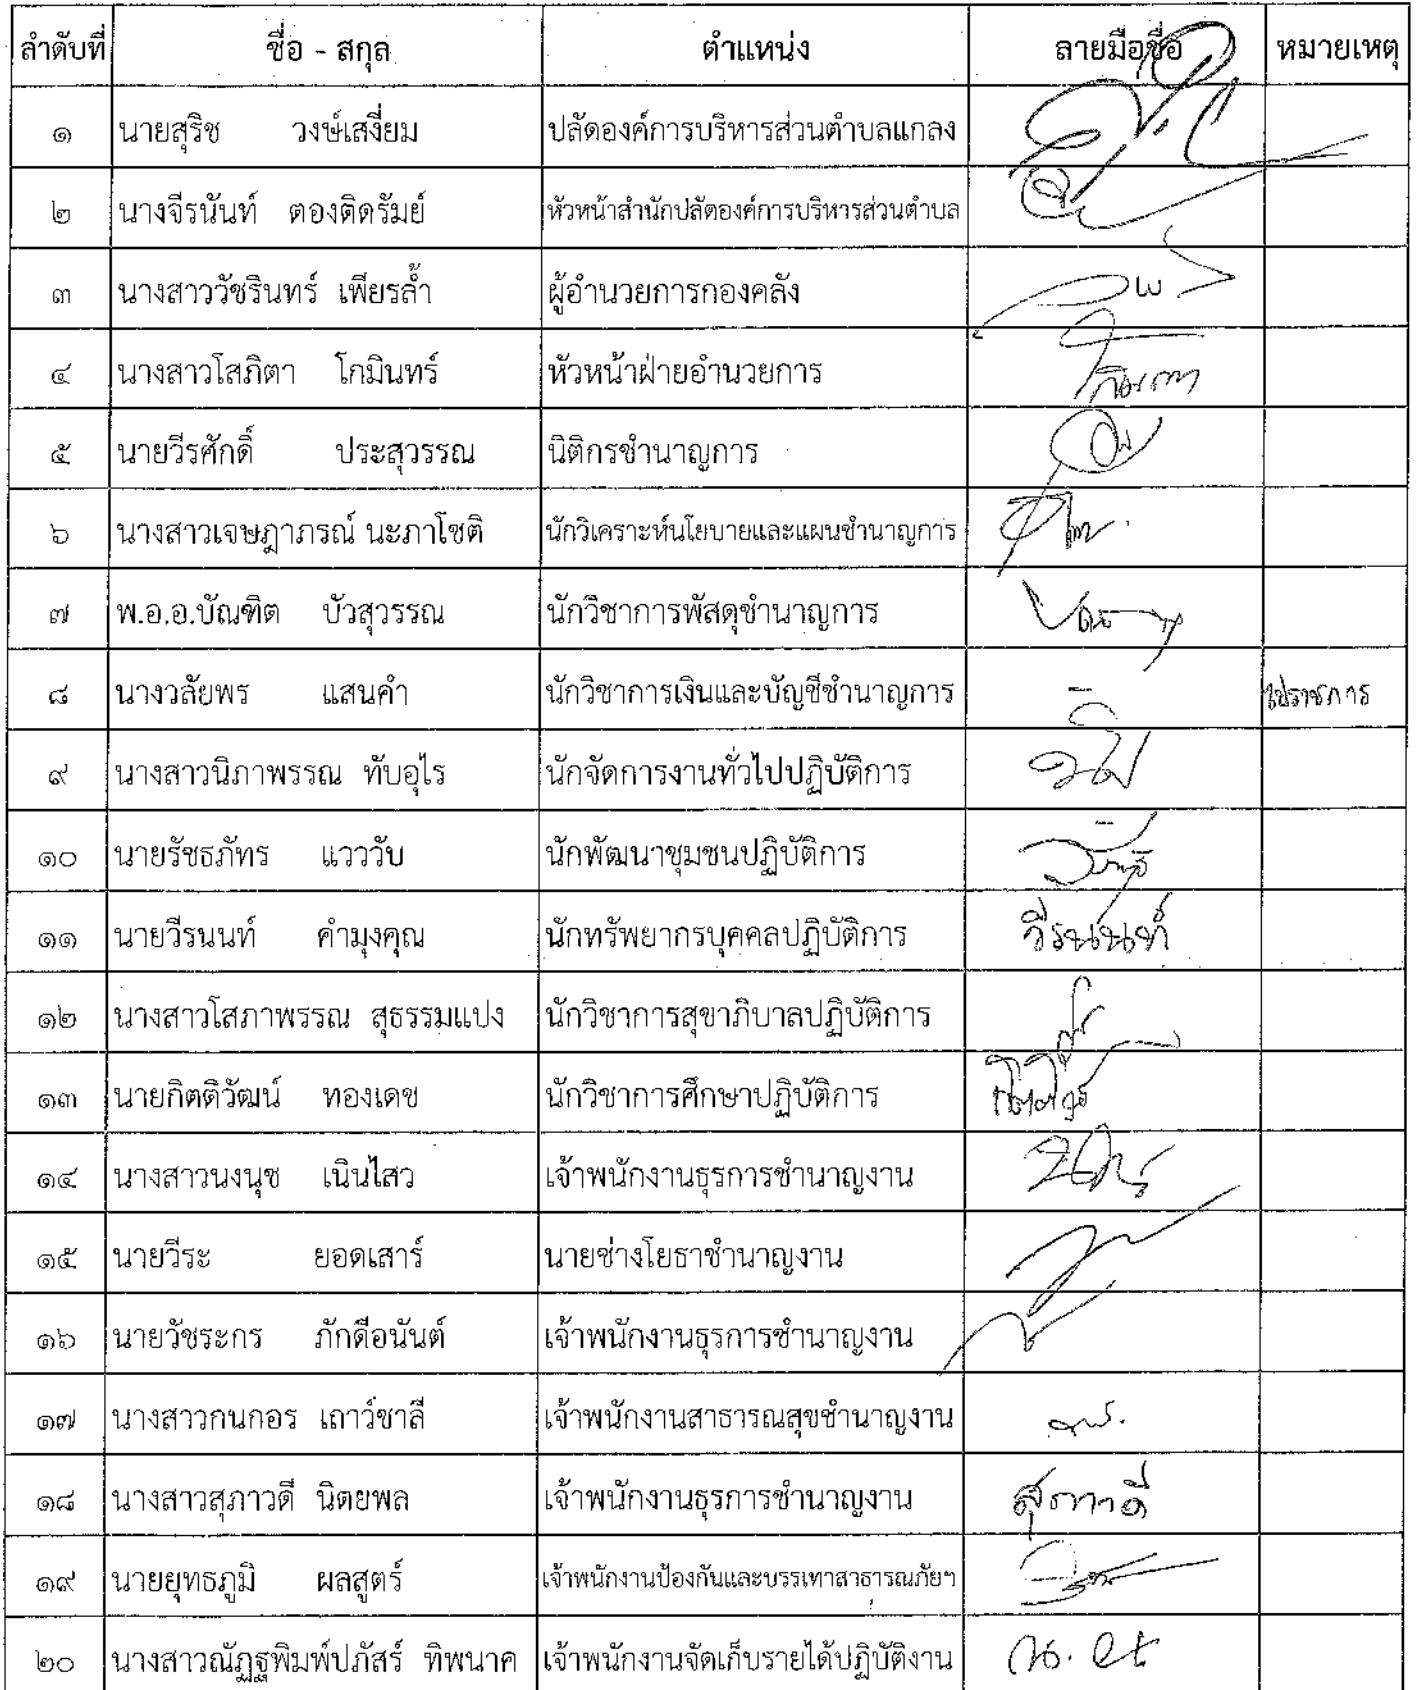 ลำดับที่ ชื่อ - สกุล ตำแหน่ง ลายมือชื่อ หมายเหตุ
๑ นายสุริช วงษ์เสงี่ยม ปลัดองค์การบริหารส่วนตำบลแกลง
๒ นางจีรนันท์ ตองติดรัมย์ หัวหน้าสำนักปลัดองค์การบริหารส่วนตำบล
๓ นางสาววัชรินทร์ เพียรล้ำ ผู้อำนวยการกองคลัง
๔ นางสาวโสภิตา โกมินทร์ หัวหน้าฝ่ายอำนวยการ
๕ นายวีรศักดิ์ ประสุวรรณ นิติกรชำนาญการ
๖ นางสาวเจษฎาภรณ์ นะภาโชติ นักวิเคราะห์นโยบายและแผนชำนาญการ
๗ พ.อ.อ.บัณฑิต บัวสุวรรณ นักวิชาการพัสดุชำนาญการ
๘ นางวลัยพร แสนคำ นักวิชาการเงินและบัญชีชำนาญการ - ไปราชการ
๙ นางสาวนิภาพรรณ ทับอุไร นักจัดการงานทั่วไปปฏิบัติการ
๑๐ นายรัชธภัทร แวววับ นักพัฒนาชุมชนปฏิบัติการ
๑๑ นายวีรนนท์ คำมุงคุณ นักทรัพยากรบุคคลปฏิบัติการ วีรนนท์
๑๒ นางสาวโสภาพรรณ สุธรรมแปง นักวิชาการสุขาภิบาลปฏิบัติการ
๑๓ นายกิตติวัฒน์ ทองเดช นักวิชาการศึกษาปฏิบัติการ
๑๔ นางสาวนงนุช เนินไสว เจ้าพนักงานธุรการชำนาญงาน
๑๕ นายวีระ ยอดเสาร์ นายช่างโยธาชำนาญงาน
๑๖ นายวัชระกร ภักดีอนันต์ เจ้าพนักงานธุรการชำนาญงาน
๑๗ นางสาวกนกอร เถาว์ชาลี เจ้าพนักงานสาธารณสุขชำนาญงาน
๑๘ นางสาวสุภาวดี นิตยพล เจ้าพนักงานธุรการชำนาญงาน สุภาวดี
๑๙ นายยุทธภูมิ ผลสูตร์ เจ้าพนักงานป้องกันและบรรเทาสาธารณภัยฯ
๒๐ นางสาวณัฏฐพิมพ์ปภัสร์ ทิพนาค เจ้าพนักงานจัดเก็บรายได้ปฏิบัติงาน